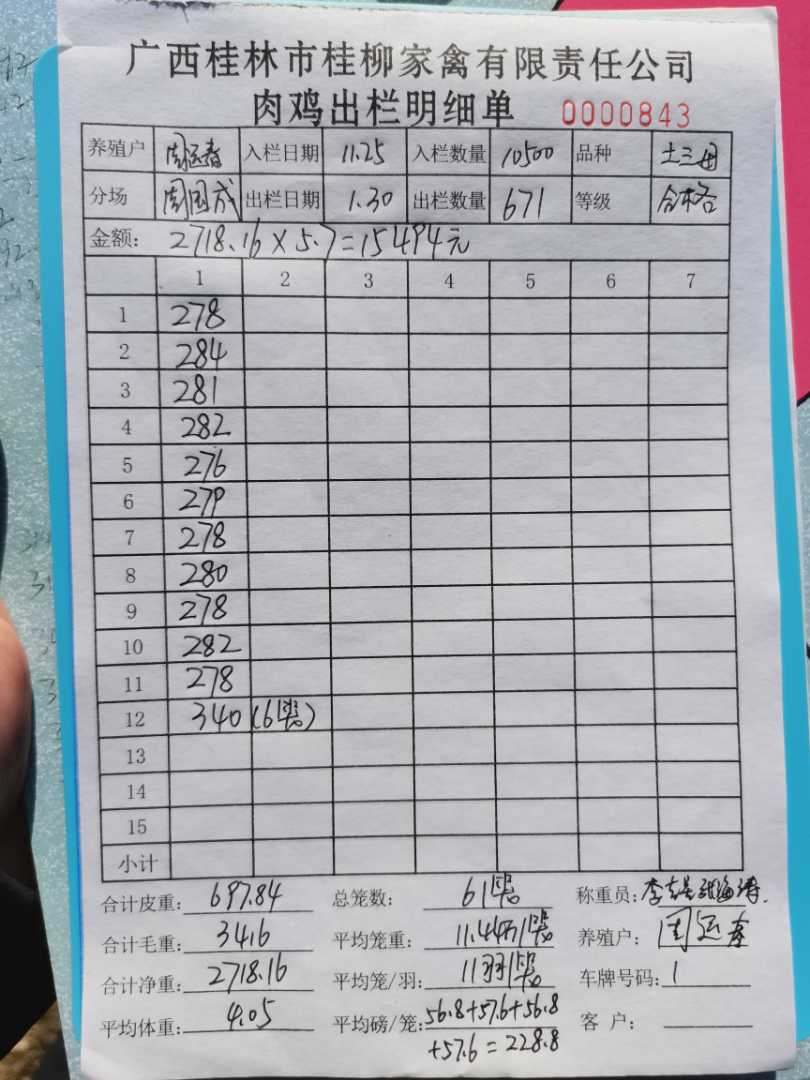 广西桂林市桂柳家禽有限责任公司
肉鸡出栏明细单 0000843
养殖户 周运春 入栏日期 11.25 入栏数量 10500 品种 土三母
分场 周国成 出栏日期 1.30 出栏数量 671 等级 合格
金额: 2718.16×5.7=15494元
1 2 3 4 5 6 7
1 278
2 284
3 281
4 282
5 276
6 279
7 278
8 280
9 278
10 282
11 278
12 340(6笼)
13
14
15
小计
合计皮重: 697.84 总笼数: 61笼 称重员: 李
合计毛重: 3416 平均笼重: 11.44斤/笼 养殖户: 周运春
合计净重: 2718.16 平均笼/羽: 11羽/笼 车牌号码: 1
平均体重: 4.05 平均磅/笼: 56.8+57.6+56.8
+57.6=228.8
客户: